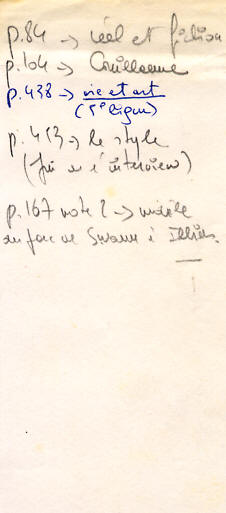 p.84 → réel et fiction
p.104 → Guillaume
p.438 → vie et art
(5e ligne)
p.413 → le style
(fin de l'interview)
p.167 note 2 → modèle
du parc de Swann à Illiers.